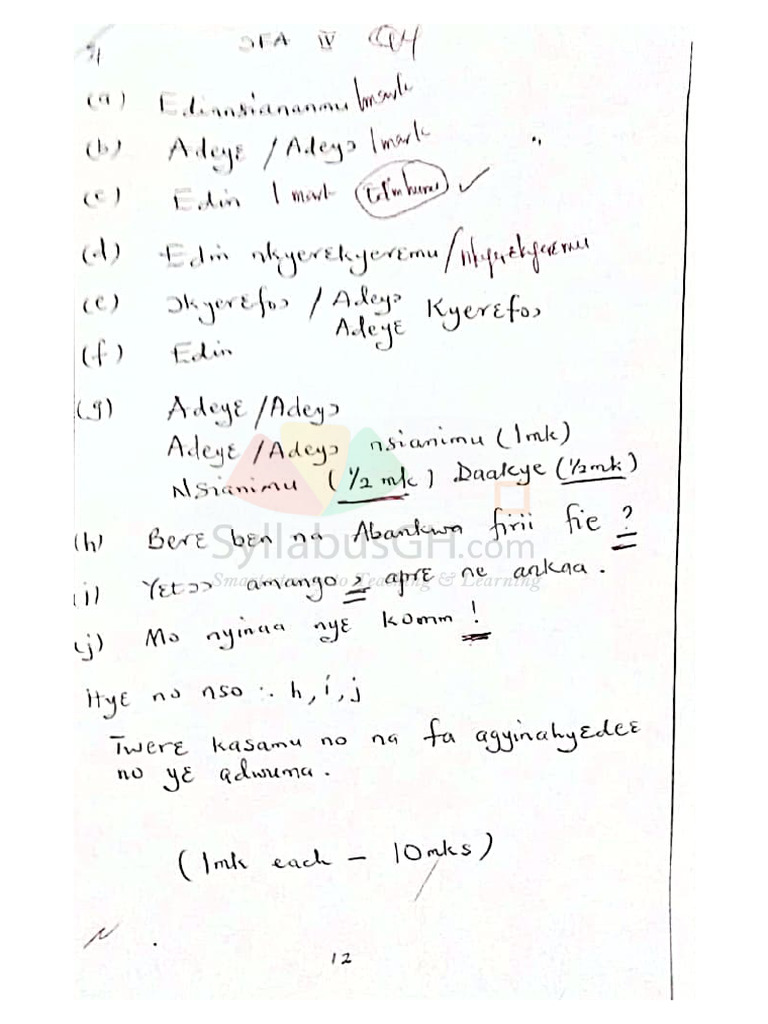 ƆFA IV Q4
(a) Edinnsiananmu 1mark
(b) Adeyɛ / Adeyɔ 1mark
(c) Edin 1 mark
(d) Edin nkyerɛkyerɛmu / Nkyerɛkyerɛmu
(e) Ɔkyerɛfoɔ / Adeyɔ
Adeyɛ Kyerɛfoɔ
(f) Edin
(g) Adeyɛ / Adeyɔ
Adeyɛ / Adeyɔ nsianimu (1mk)
Nsianimu (1/2 mk) Daakye (1/2 mk)
(h) Berɛ bɛn na Abankwa firii fie ?
SyllabusGH.com
(i) Yɛtɔɔ amango, aprɛ ne ankaa.
to Teaching & Learning
(j) Mo nyinaa nyɛ komm !
Hyɛ no nso :. h, i, j
Twerɛ kasamu no na fa agyinahyɛdeɛ
no yɛ adwuma.
(1mk each – 10mks)
12